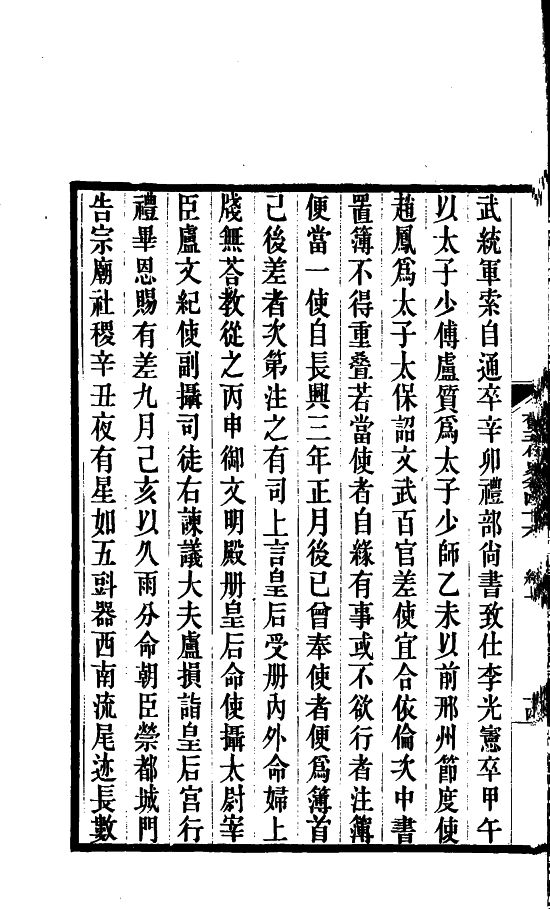 武統軍索自通卒辛卯禮部尙書致仕李光憲卒甲午
以太子少傅盧質爲太子少師乙未以前邢州節度使
趙鳳爲太子太保詔文武百官差使宜合依倫次中書
置簿不得重疊若當使者自緣有事或不欲行者注簿
便當一使自長興三年正月後已曾奉使者便爲簿首
已後差者次第注之有司上言皇后受册內外命婦上
牋無荅教從之丙申御文明殿册皇后命使攝太尉宰
臣盧文紀使副攝司徒右諫議大夫盧損詣皇后宮行
禮畢恩賜有差九月己亥以久雨分命朝臣禜都城門
告宗廟社稷辛丑夜有星如五㪷器西南流尾迹長數